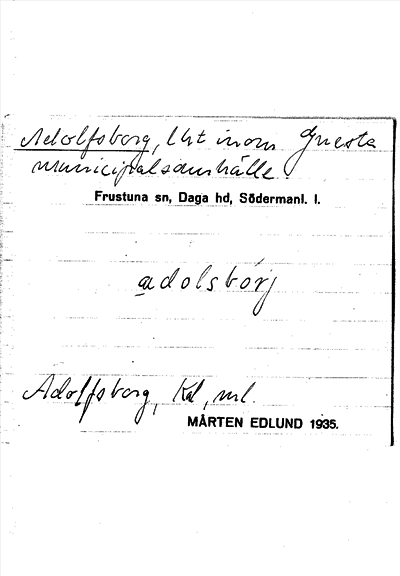 Adolfsborg, lht inom Gnesta
municipalsamhälle.
Frustuna sn, Daga hd, Södermanl. l.
adolsborj
Adolfsborg, Kd, ml.
MÅRTEN EDLUND 1935.